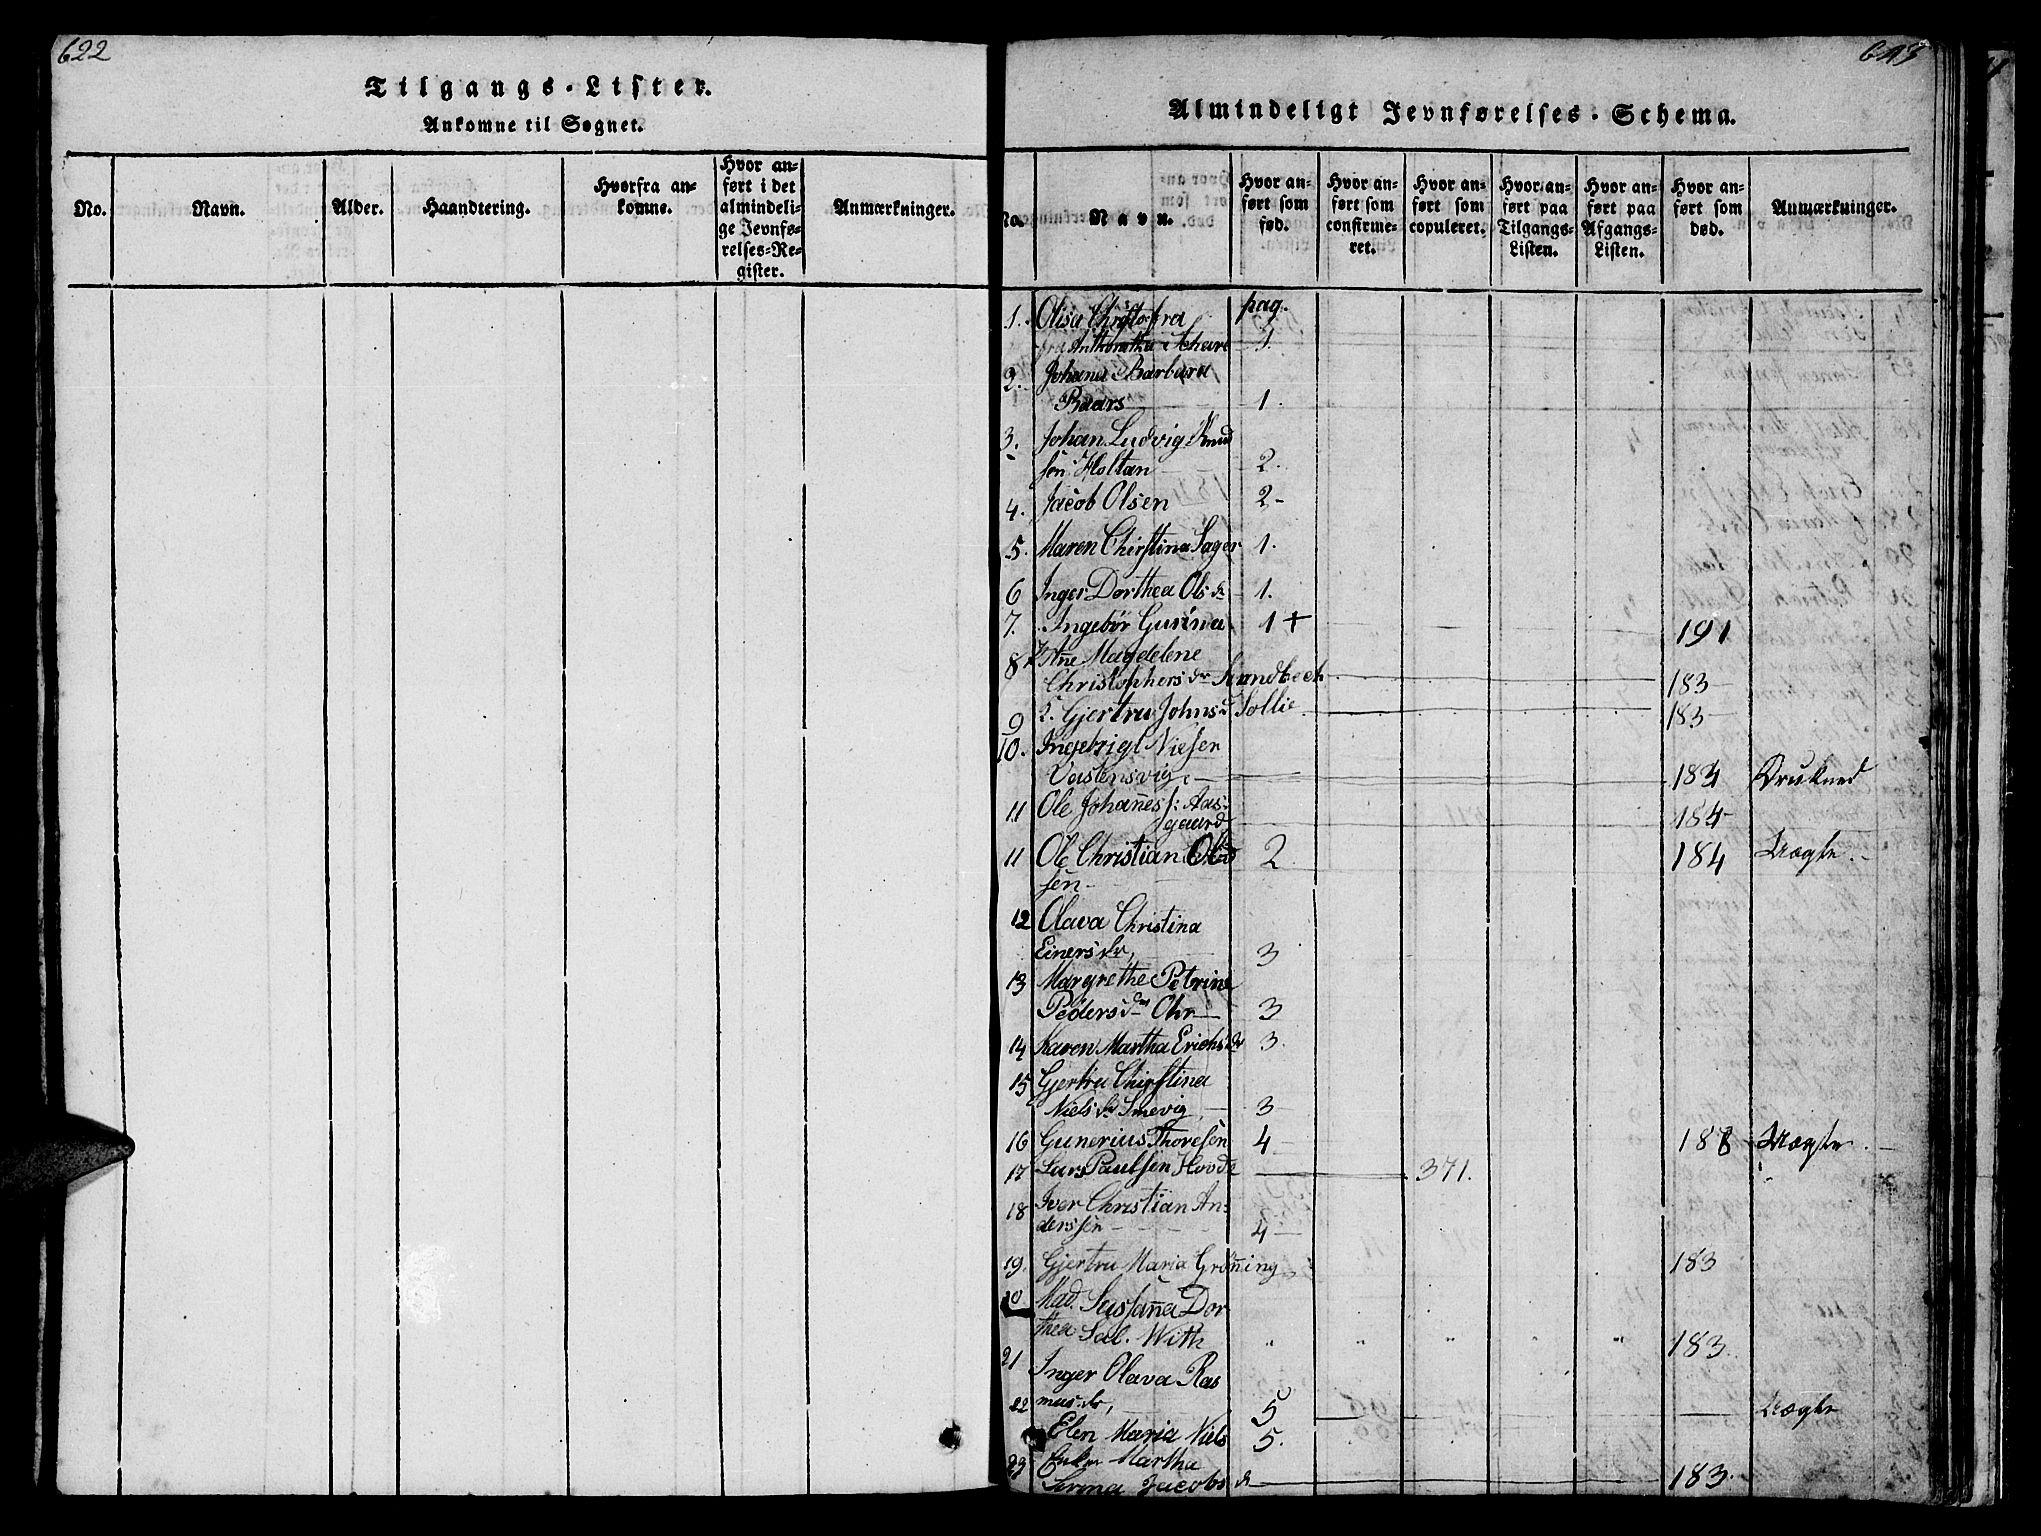 622
Tilgangs-Lister.
Ankomne til Sognet.
No.
Navn.
Alder.
Haandtering.
Hvorfra an-
komne.
Hvor an-
ført i det
almindeli-
ge Jevnfø-
relses-Re-
gister.
Anmærkninger.
Almindeligt Jevnførelses-Schema.
No.
Navn.
Hvor an-
ført som
fød.
Hvor an-
ført som
confirme-
ret.
Hvor an-
ført som
copuleret.
Hvor an-
ført paa
Tilgangs-
Listen.
Hvor an-
ført paa
Afgangs-
Listen.
Hvor an-
ført som
død.
Anmærkninger.
1. Olisa Christofra pag.
1.
2. Johana Barbara
Baars 1.
3. Johan Ludvig Knud
sen Holtan 2.
4. Jacob Olsen 2-
5. Maren Chirstina Sager 1.
6 Inger Dorthea Ols dr 1.
7. Ingebor Gurina 1+ 191
8 Añe Magdelene
Christophers dr Sundbech 183
9 Gjertru Johns d Sollie 183
10. Ingebrigt Nielsen
Vastensvig 184 Drukned
11 Ole Johañes s: Aas-
gaard 184
11 Ole Christian Ole
sen 2 184
12 Olava Christina
Einers dr, 3
13 Margrethe Petrine
Peders dr 3
14 Karen Martha Erichs dr 3.
15 Gjertru Chirstina
Niels dr Smevig 3
16 Gunerius Thoresen 4 188
17 Lars Paulsen Hovde 371.
18 Iver Christian An-
derssen 4
19. Gjertru Maria Gröñing 183
Mad. Susaña Dor
thea Sal. With " " " " " 183.
21 Inger Olava Ras
mus dr, 5
22 Elen Maria Niels 5.
23 Enke Martha
Serina Jacobs dr 183.